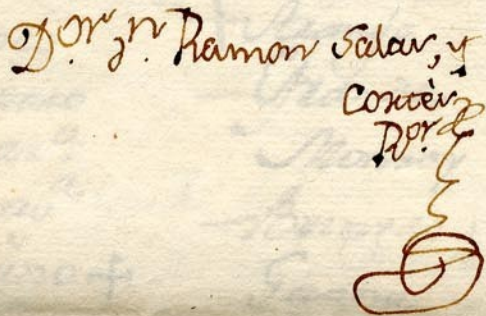 D.or D.n Ramon Salas, y
Cortès
R.or